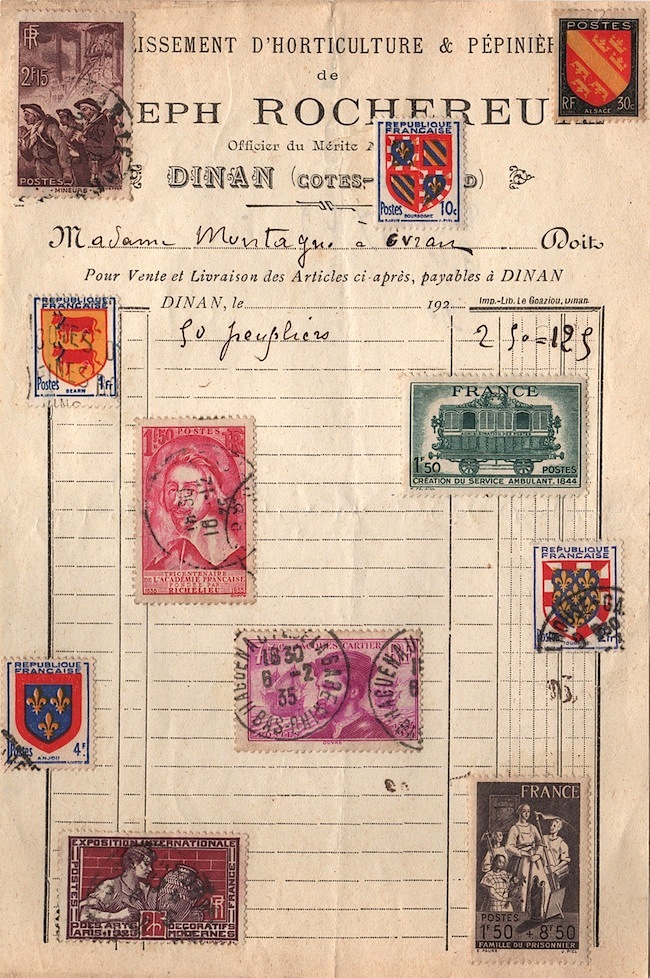 RF
2f15
POSTES
MINEURS
LISSEMENT D'HORTICULTURE & PÉPINIÈ
de
EPH ROCHEREU
Officier du Mérite
DINAN (COTES- D)
POSTES
RF 30c
ALSACE
REPUBLIQUE
FRANÇAISE
Postes 10c
BOURGOGNE
Madame Montague à Evran Doit
Pour Vente et Livraison des Articles ci-après, payables à DINAN
DINAN, le 192 Imp.-Lib. Le Goaziou, Dinan.
50 peupliers 2 50 = 125
REPUBLIQUE
FRANÇAISE
Postes 1Fr
BEARN
FRANCE
1f50 POSTES
CRÉATION DU SERVICE AMBULANT. 1844
1f50 POSTES RF
TRICENTENAIRE
DE L'ACADÉMIE FRANÇAISE
FONDÉE PAR
RICHELIEU
1635 1935
REPUBLIQUE
FRANÇAISE
Postes 2Fr
TOURAINE
JACQUES CARTIER
HAGUENAU
16 30
6 -2
35
BAS-RHIN
HAGUENAU
REPUBLIQUE
FRANÇAISE
Postes 4F
ANJOU
EXPOSITION INTERNATIONALE
POSTES
FRANCE
25
DES ARTS DECORATIFS
PARIS 1925 MODERNES
FRANCE
POSTES
1F50 + 8F50
FAMILLE DU PRISONNIER